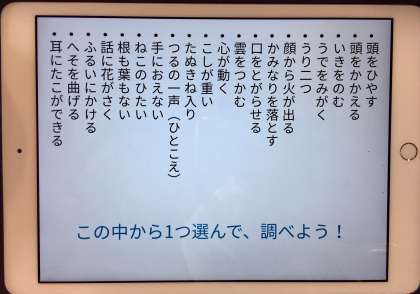 ・頭をひやす
・頭をかかえる
・いきをのむ
・うでをみがく
・うり二つ
・顔から火が出る
・かみなりを落とす
・口をとがらせる
・雲をつかむ
・心が動く
・こしが重い
・たぬきね入り
・つるの一声（ひとこえ）
・手におえない
・ねこのひたい
・根も葉もない
・話に花がさく
・ふるいにかける
・へそを曲げる
・耳にたこができる
この中から1つ選んで、調べよう！